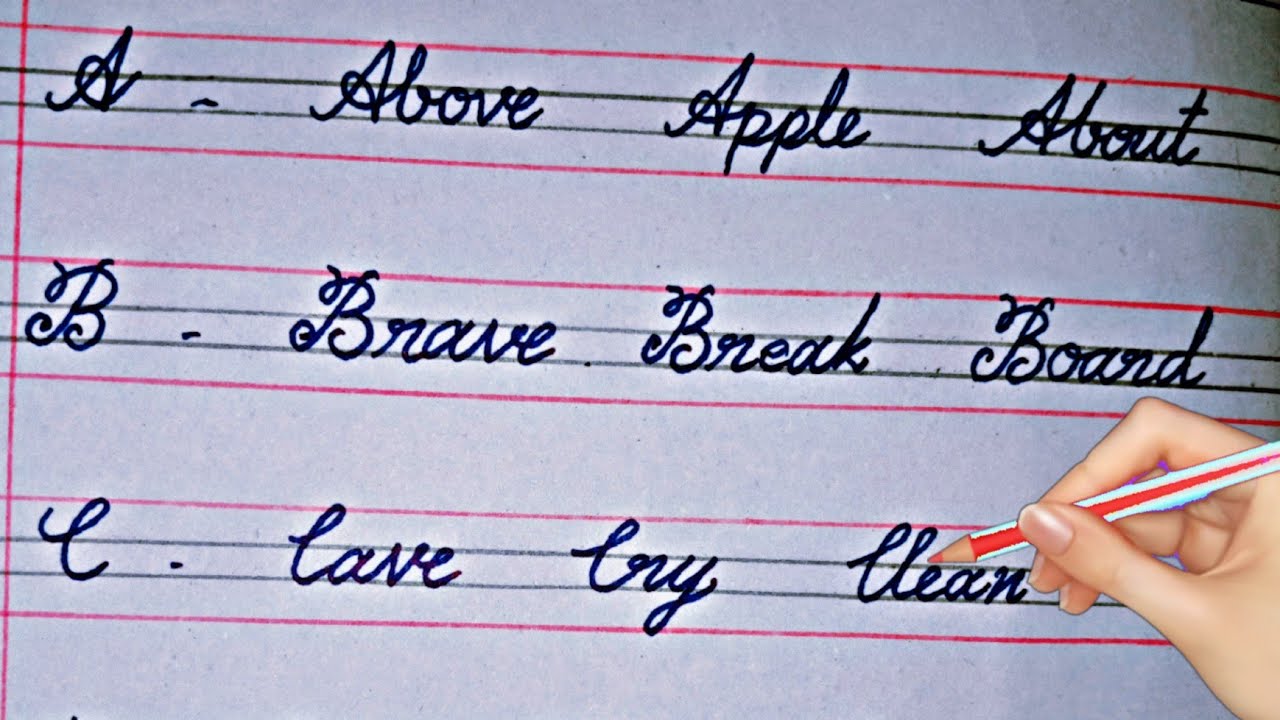 A - Above Apple About
B - Brave Break Board
C - Cave Cry Clean